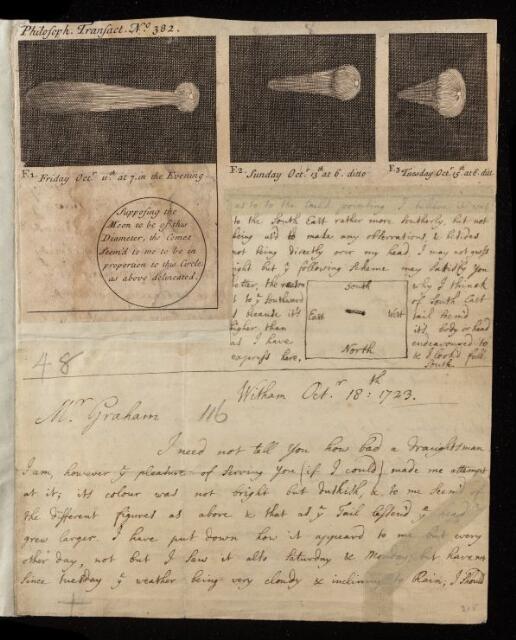 Philosoph. Transact. No. 382.
F1. Friday Octr. 11th at 7. in the Evening
F2. Sunday Octr. 13th at 6. ditto
F3. Tuesday Octr. 15th at 6. ditt.
Supposing the
Moon to be of this
Diameter, the Comet
seem'd to me to be in
proportion to this Circle,
as above delineated.
as to to the tail's pointing I it was
to the South East rather more Southerly, but not
being us'd to make any observations, & besides
not being directly over my head I may not guess
right but ye following Scheme may Satisfy You
better, the reason why I think
to ye Southward of South East
is because it's tail seem'd
higher than it's body or head
as I have endeavoured to
express here. & I look'd full
South.
South
East West
North
48
Witham Octr. 18:th 1723.
Mr. Graham 116
I need not tell You how bad a Draughtsman
I am, however ye pleasure of Serving You (if I could) made me attempt
at it; its colour was not bright but duskish, & to me seem'd of
the different figures as above & that as ye Tail lessend ye head
grew larger. I have put down how it appeard to me but every
other day, not but I saw it also Saturday & Monday, but have not
Since tuesday ye weather being very cloudy & inclining to Rain; I should